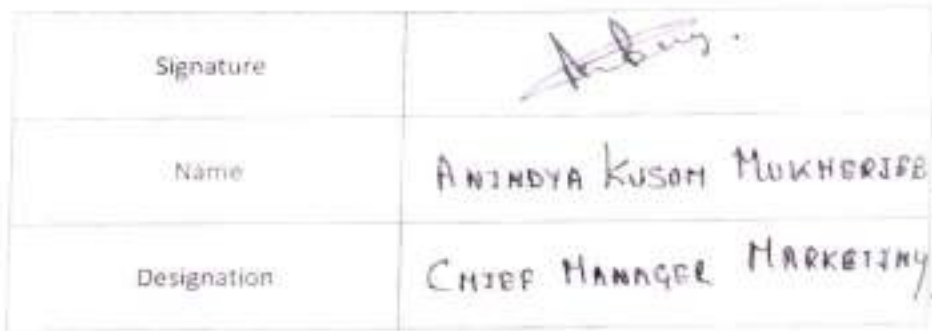 Signature
Name ANINDYA KUSOM MUKHERJEE
Designation CHIEF MANAGER MARKETING